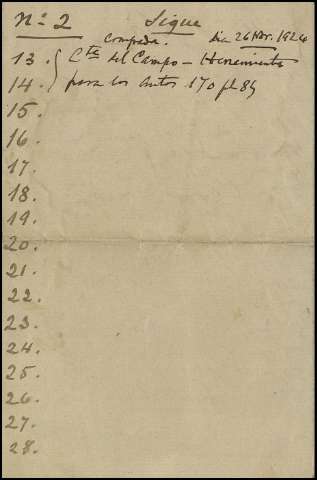 Nº 2 Sigue
Comprada. Dia 26 Nov. 1924
13. Cta del Campo -
14. para los Autos 170 pl 84
15.
16.
17.
18.
19.
20.
21.
22.
23.
24.
25.
26.
27.
28.